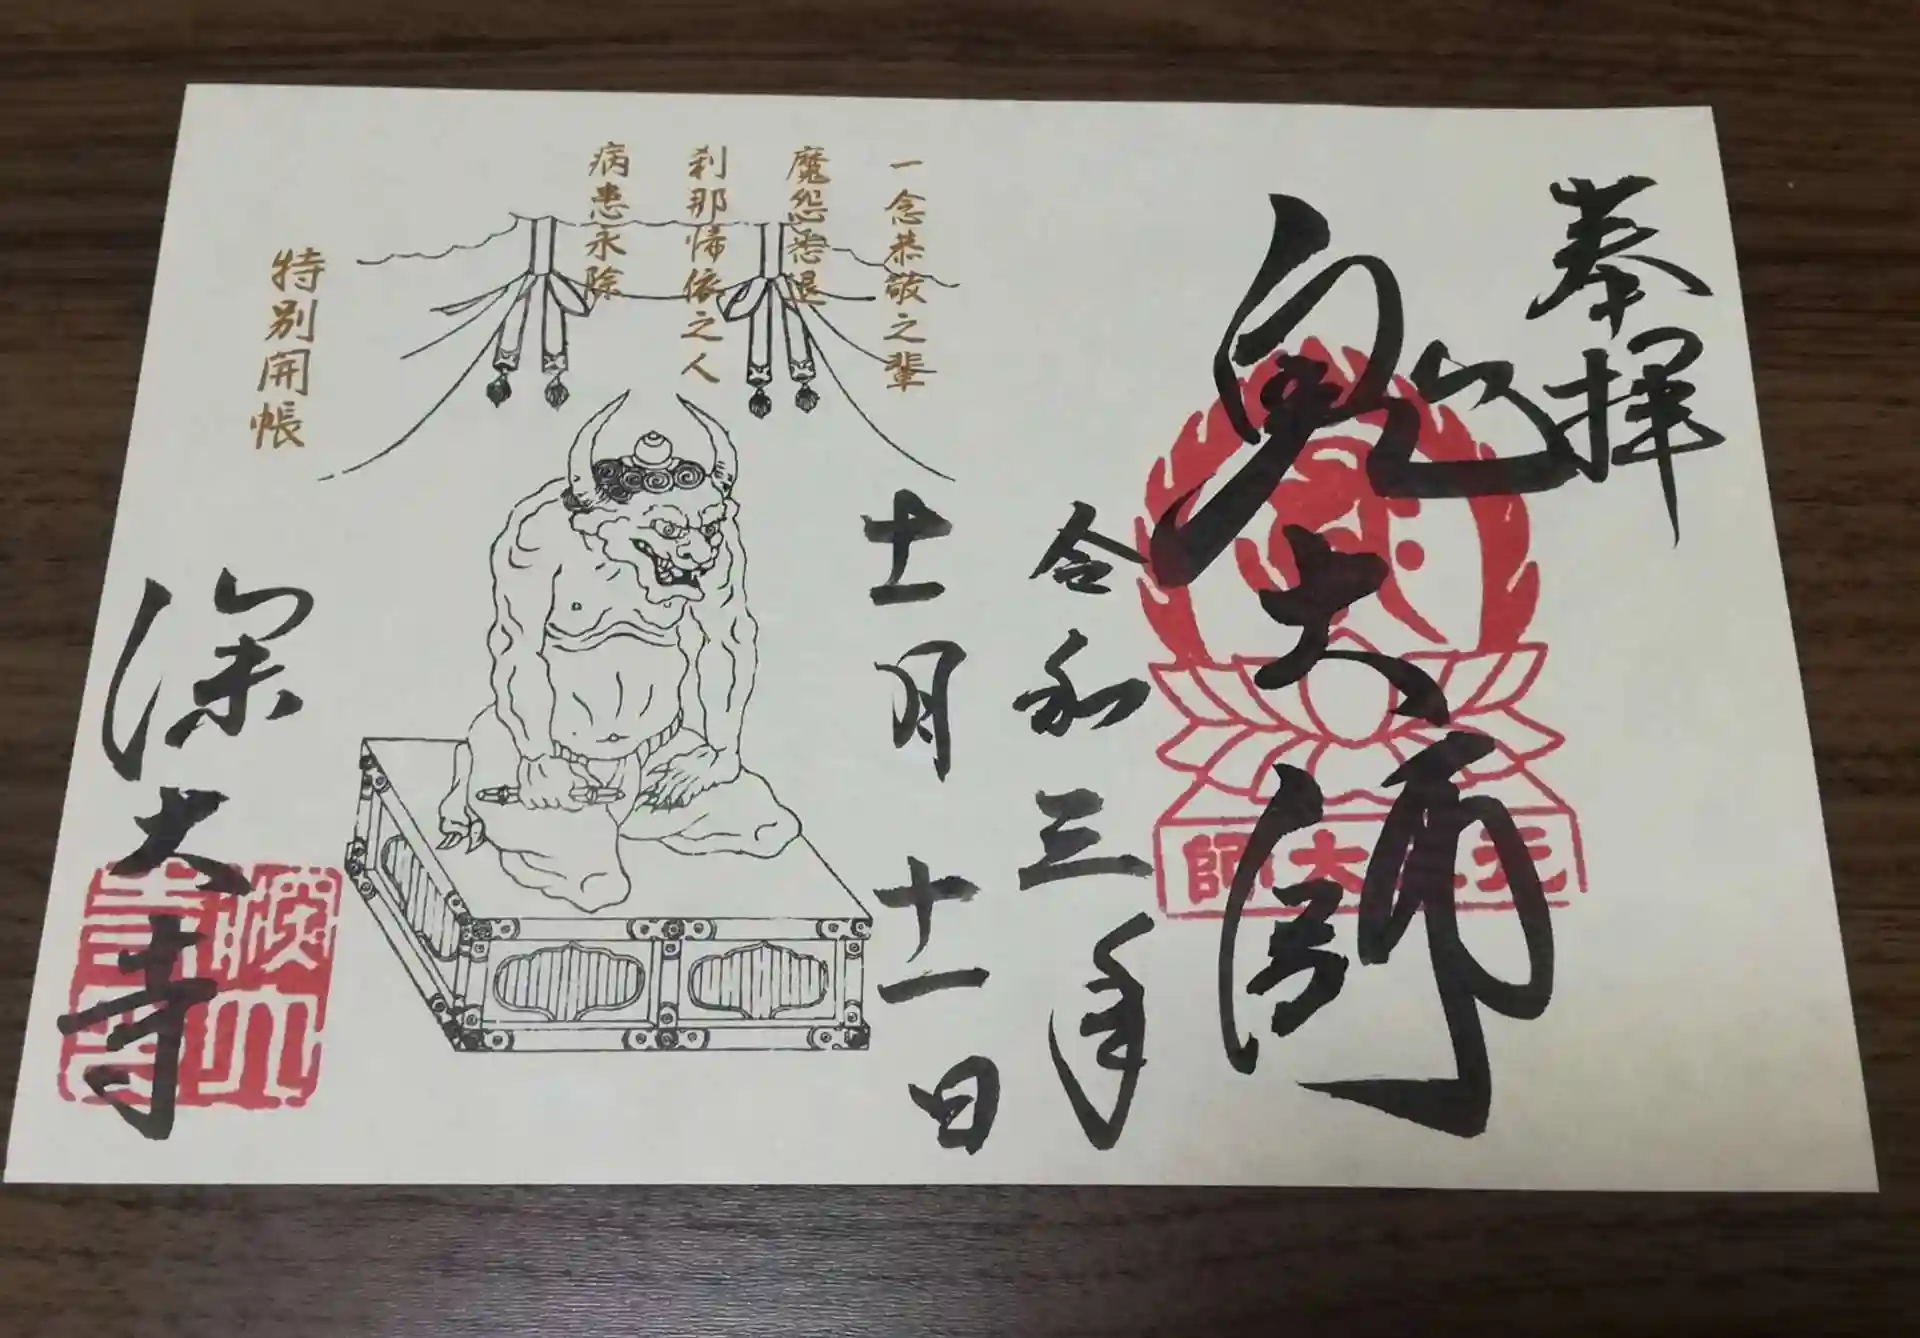 奉拝
鬼大師
元三大師
令和三年
十一月十一日
一念恭敬之輩
魔怨悉退
刹那帰依之人
病患永除
特別開帳
深大寺